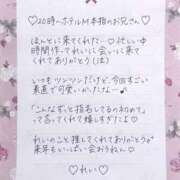 ♡20時〜ホテルM本指のお兄さん♡
ほんとに来てくれた♡忙しい中
時間作ってれいに会いに来て
くれてありがとう(泣)
いつもツンツンだけど、今回すごい
素直で可愛いかったなぁ〜♡
「こんなずっと指名してるの初めて」
って言ってくれて嬉しすぎたよ♡
れいのこと推してくれてありがとう
来年もいっぱい会おうねん♡
♡れい♡